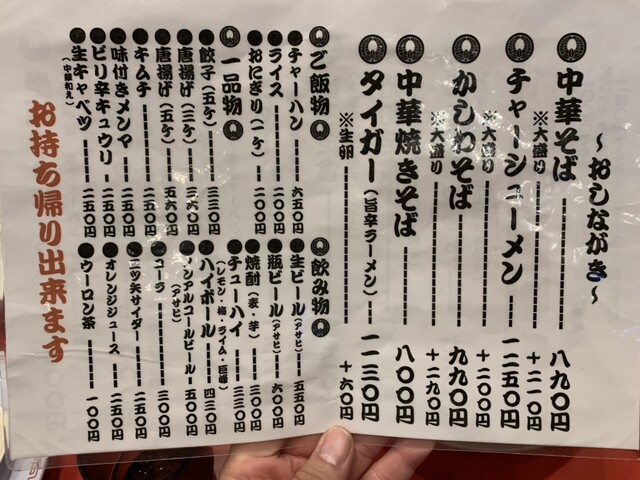 ～おしながき～
中華そば 八九〇円
※大盛り ＋二一〇円
チャーシューメン 一二五〇円
※大盛り ＋二〇〇円
かしわそば 九九〇円
※大盛り ＋二九〇円
中華焼きそば 八〇〇円
タイガー（旨辛ラーメン） 一一三〇円
※生卵 ＋六〇円
ご飯物
チャーハン 六五〇円
ライス 二〇〇円
おにぎり（一ヶ） 二〇〇円
一品物
餃子（五ヶ） 三三〇円
唐揚げ（三ヶ） 三六〇円
唐揚げ（五ヶ） 五六〇円
キムチ 二五〇円
味付きメンマ 二五〇円
ピリ辛キュウリ 二五〇円
生キャベツ（中華和え） 二五〇円
飲み物
生ビール（アサヒ） 五五〇円
瓶ビール（アサヒ） 六〇〇円
焼酎（麦・芋） 三〇〇円
チューハイ 三三〇円
（レモン・梅・ライム・巨峰）
ハイボール 四三〇円
ノンアルコールビール（アサヒ） 五〇〇円
コーラ 三〇〇円
三ツ矢サイダー 二五〇円
オレンジジュース 二五〇円
ウーロン茶 一〇〇円
お持ち帰り出来ます